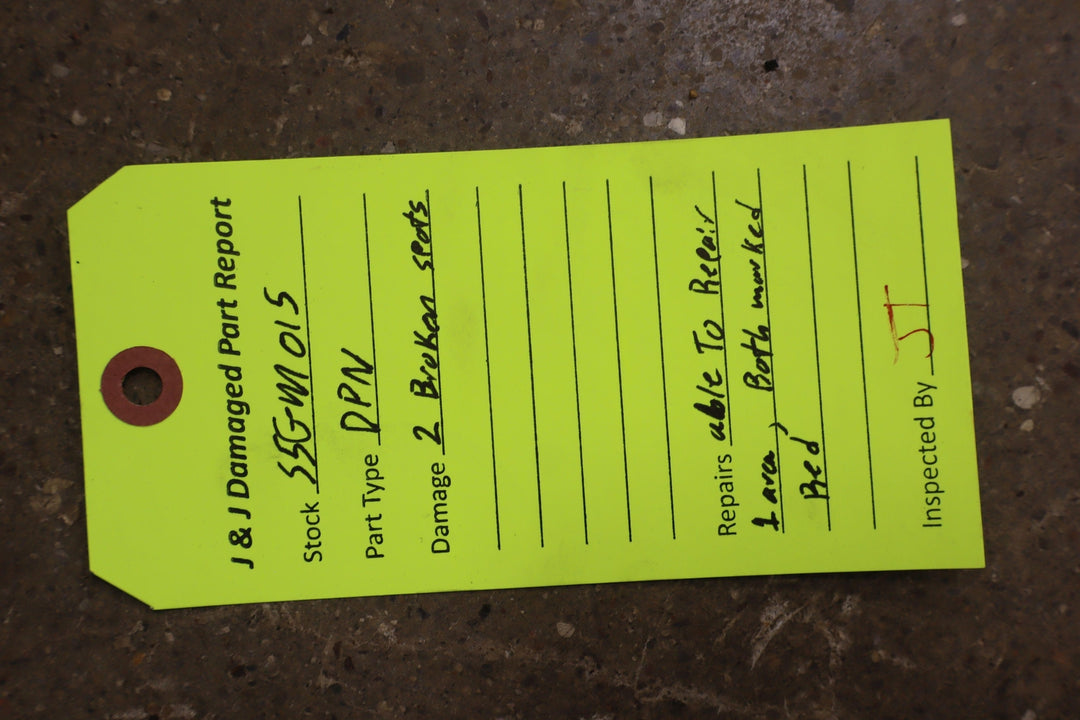 J & J Damaged Part Report
Stock SSGM015
Part Type DPN
Damage 2 Broken spots
Repairs able To Repair
1 area, Both marked
Red
Inspected By